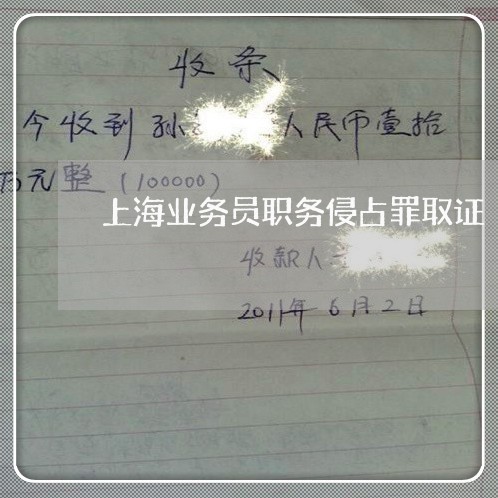 收条
今收到孙 人民币壹拾
万元整(100000)
上海业务员职务侵占罪取证
收款人
2011年6月2日